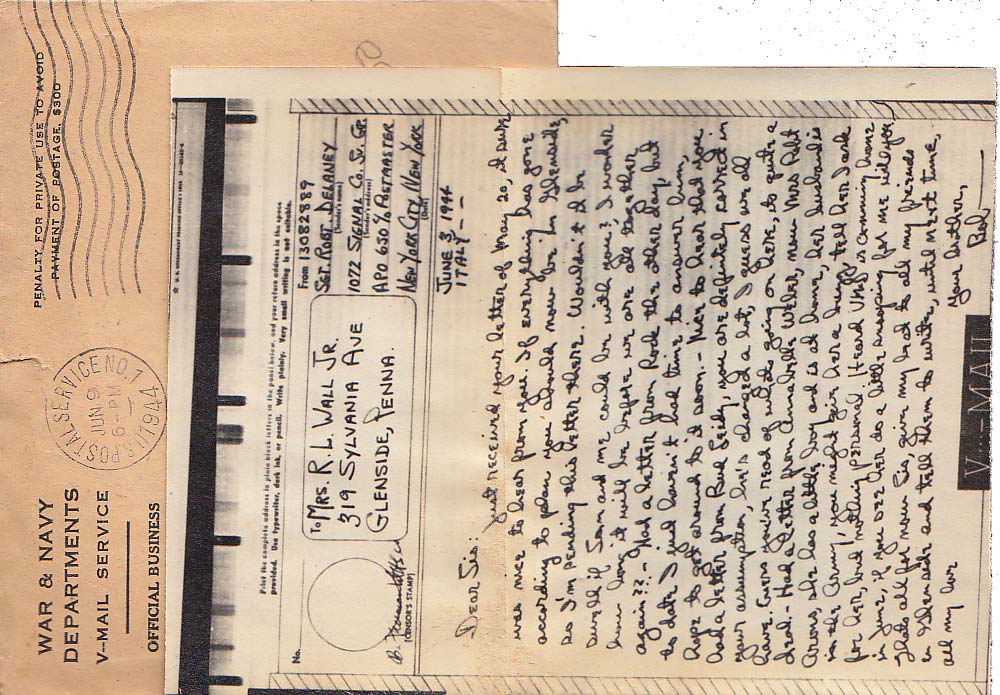 WAR & NAVY
DEPARTMENTS
V-MAIL SERVICE
OFFICIAL BUSINESS
U.S. POSTAL SERVICE NO. 1
JUN 9
6-PM
1944
PENALTY FOR PRIVATE USE TO AVOID
PAYMENT OF POSTAGE, $300
Print the complete address in plain block letters in the panel below, and your return address in the space
provided. Use typewriter, dark ink, or pencil. Write plainly. Very small writing is not suitable.
No.
(CENSOR'S STAMP)
To MRS. R. L. WALL JR.
319 SYLVANIA AVE
GLENSIDE, PENNA.
From 13082889
SGT ROBT DELANEY
(Sender's name)
1072 SIGNAL CO. SV. GP.
(Sender's address)
APO 650 % POSTMASTER
NEW YORK CITY NEW YORK
(Date)
JUNE 3, 1944
ITALY - -
Dear Sis:
Just received your letter of May 20, it sure
was nice to hear from you. If everything has gone
according to plan you should now be in Glenside,
so I'm sending this letter there. Wouldn't it be
swell if Tom and me could be with you? I wonder
how long it will be before we are all together
again??. - Had a letter from Rock the other day, but
to date I just haven't had time to answer him,
hope to get around to it soon. - Nice to hear that you
had a letter from Rud Leidy, you are definitely correct in
your assumption, he's changed a lot, I guess we all
have. Guess you've read of what's going on here, to quite a
deal. - Had a letter from Annabelle Weber, now Mrs Robt
Arons, she has a little boy and is at home, her husband is
in the Army, you might give her a buzz, tell her I ask
for her, but nothing personal. Heard Umpy is comming home
in June, if you see her do a little snooping for me will you
That's all for now Sis, give my best to all my friends
in Glenside and tell them to write, until next time,
all my love
Your brother,
Bob -
V-MAIL